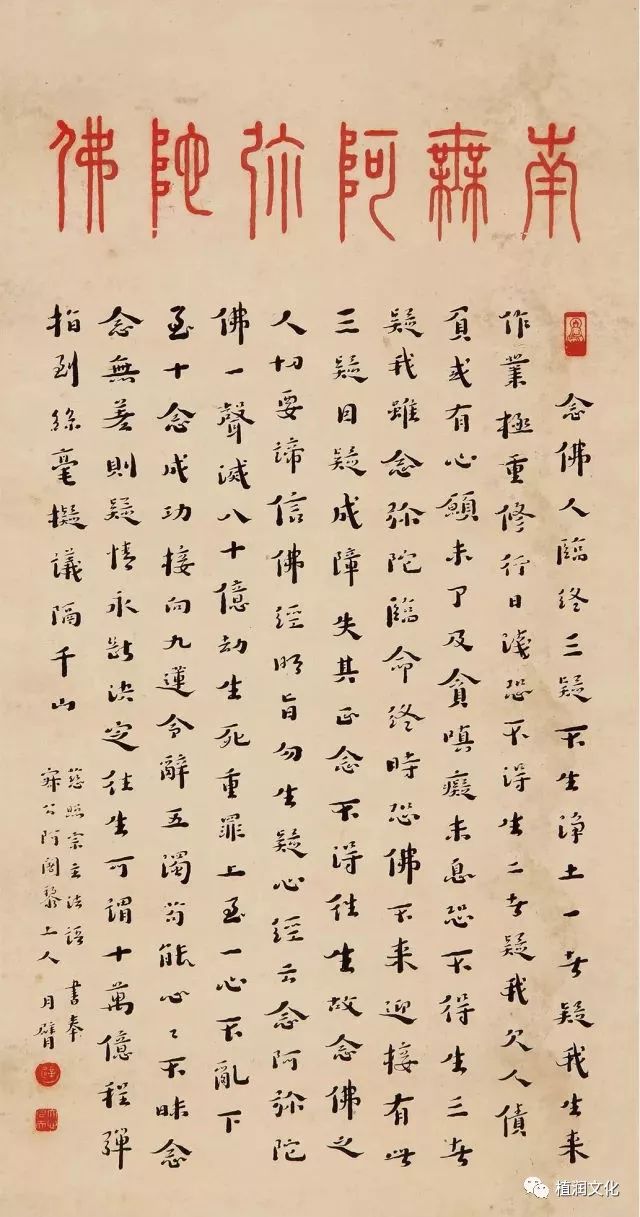 南無阿弥陀佛
念佛人臨終三疑不生淨土一者疑我生来
作業極重修行日淺恐不得生二者疑我欠人債
負或有心願未了及貪嗔癡未息恐不得生三者
疑我雖念弥陀臨命終時恐佛不来迎接有此
三疑因疑成障失其正念不得往生故念佛之
人切要諦信佛經明旨勿生疑心經云念阿弥陀
佛一聲滅八十億劫生死重罪上至一心不亂下
至十念成功接向九蓮令辭五濁苟能心々不昧念
念無差則疑情永斷決定往生可謂十萬億程彈
指到絲毫擬議隔千山
慈照宗主法語 書奉
寂公阿闍黎上人 月臂
植润文化